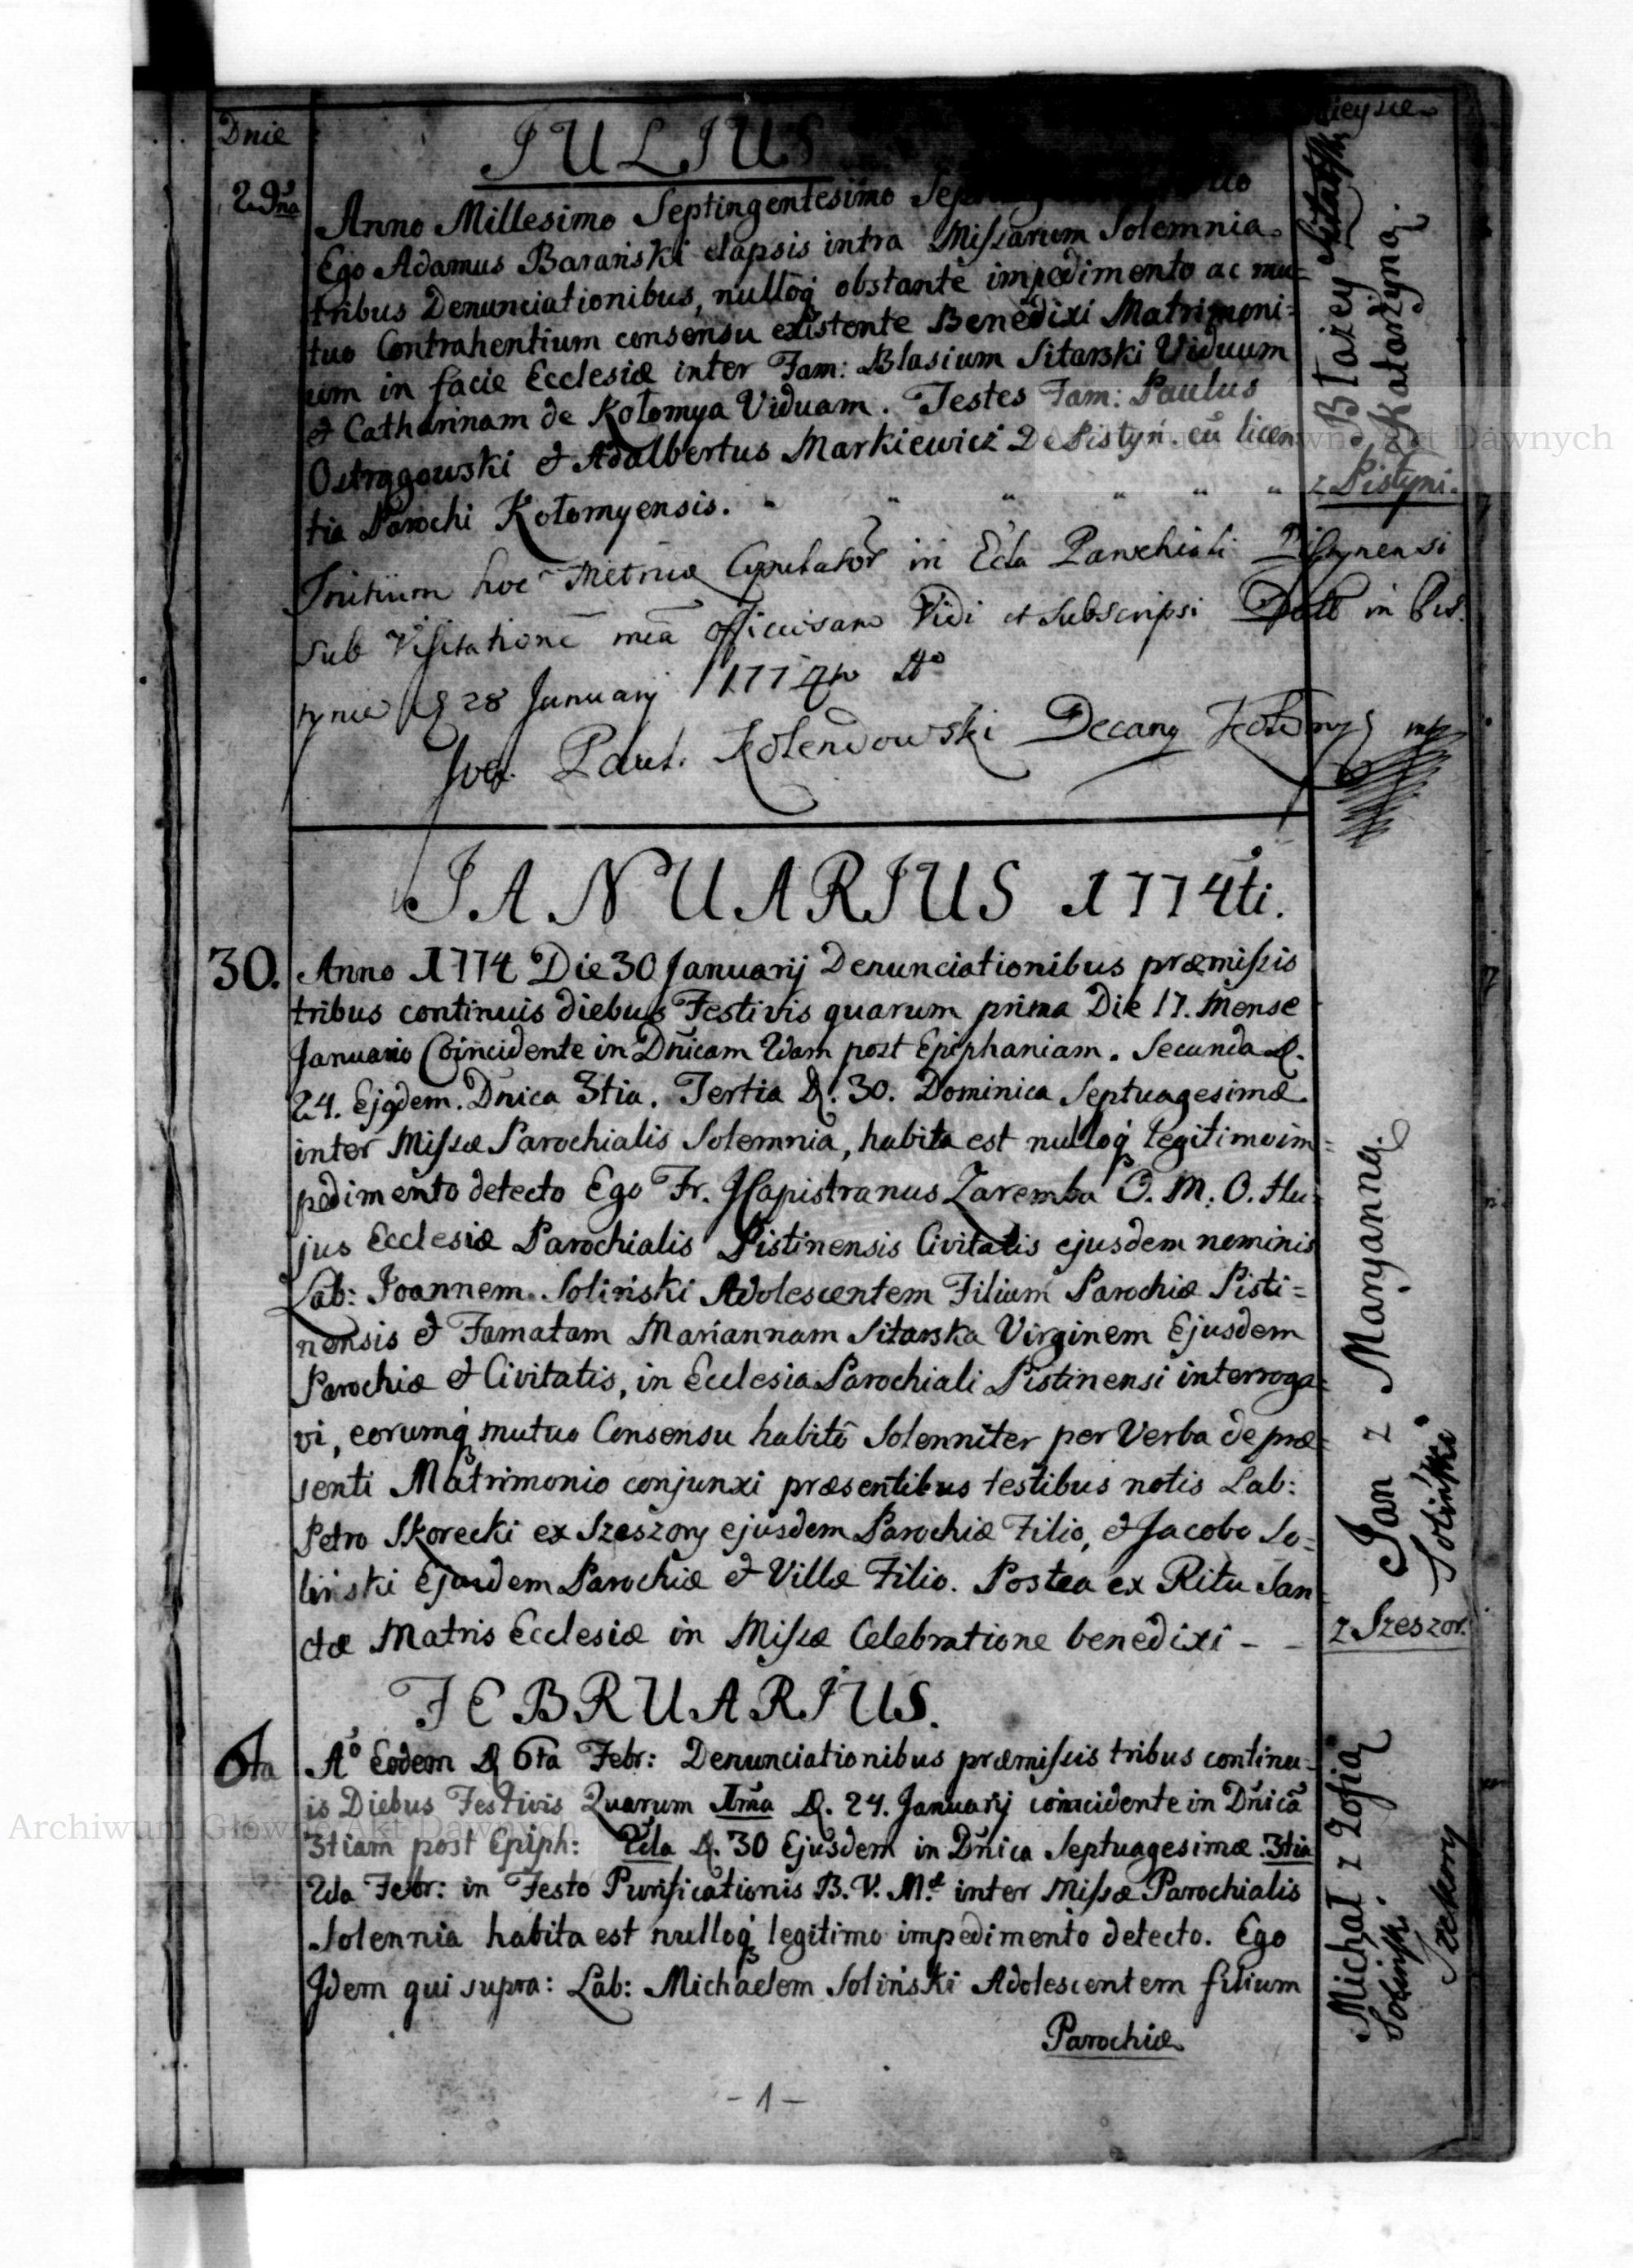 Dnie
JULIUS
mieysce
2da
Anno Millesimo Septingentesimo
Ego Adamus Barański elapsis intra Missarum Solemnia
tribus Denunciationibus, nulloq obstante impedimento ac mu=
tuo Contrahentium consensu existente Benedixi Matrimoni=
um in facie Ecclesiæ inter Fam: Blasium Sitarski Viduum
& Catharinam de Kołomya Viduam. Testes Fam: Paulus
Ostrągowski & Adalbertus Markiewicz De Pistyń. cū licen
tia Parochi Kołomyensis.
Błażey Sitarski
z Katarzyną.
z Pistyni.
Initium hoc Metricæ Copulator in Ecla Parochiali Pistynensi
sub Visitatione mea officiosam Vidi et Subscripsi Datt in Pis
tynie D 28 Januarij 1774to Ao
Paul. Kolendowski Decang mp
JANUARIUS 1774ti.
30.
Anno 1774 Die 30 Januarij Denunciationibus præmissis
tribus continuis diebus Festivis quarum prima Die 17. Mense
Januario Coincidente in Dñicam 2dam post Epiphaniam. Secunda D.
24. Ejqdem. Dnica 3tia. Tertia D. 30. Dominica Septuagesimæ
inter Missæ Parochialis Solemnia, habita est nulloq legitimo im=
pedimento detecto Ego Fr. JCapistranus Zaremba O. M. O. Hu=
jus Ecclesiæ Parochialis Pistinensis Civitatis ejusdem neminis
Lab: Joannem Soliński Adolescentem Filium Parochiæ Pisti=
nensis & Famatam Mariannam Sitarska Virginem Ejusdem
Parochiæ & Civitatis, in Ecclesia Parochiali Pistinensi interroga=
vi, eorumq mutuo Consensu habitō Solenniter per Verba de præ=
senti Matrimonio conjunxi præsentibus testibus notis Lab:
Petro Skorecki ex Szeszory ejusdem Parochiæ Filio, & Jacobo So=
liński Ejusdem Parochiæ & Villæ Filio. Postea ex Ritu San
ctæ Matris Ecclesiæ in Missæ Celebratione benedixi - -
Jan z Maryanną.
Soliński
z Szeszor.
FEBRUARIUS.
6ta
Ao Eodem D 6ta Febr: Denunciationibus præmissis tribus continu=
is Diebus Festivis Quarum Ima D. 24. Januarij coincidente in Dñicā
3tiam post Epiph: 2da D. 30 Ejusdem in Dñica Septuagesimæ. 3tia
2da Febr: in Festo Purificationis B. V. M. inter Missæ Parochialis
Solennia habita est nulloq legitimo impedimento detecto. Ego
Idem qui supra: Lab: Michaelem Soliński Adolescentem filium
Parochiæ
Michał z Zofią
Soliński
Szeszory
- 1 -
Archiwum Główne Akt Dawnych
Archiwum Główne Akt Dawnych